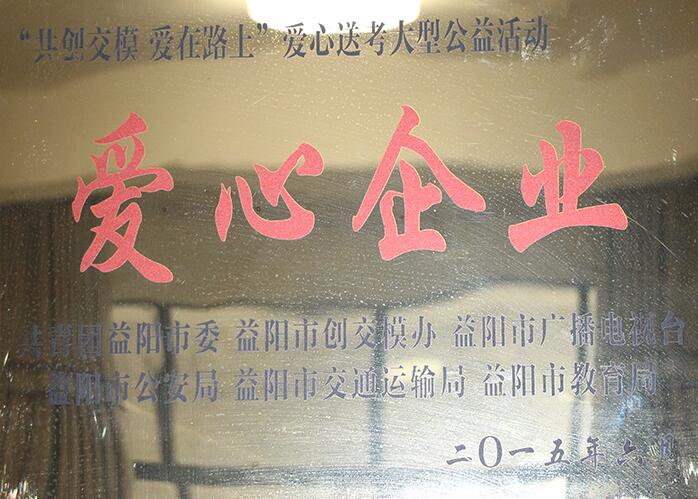 “共创交模 爱在路上”爱心送考大型公益活动
爱心企业
共青团益阳市委 益阳市创交模办 益阳市广播电视台
益阳市公安局 益阳市交通运输局 益阳市教育局
二〇一五年六月